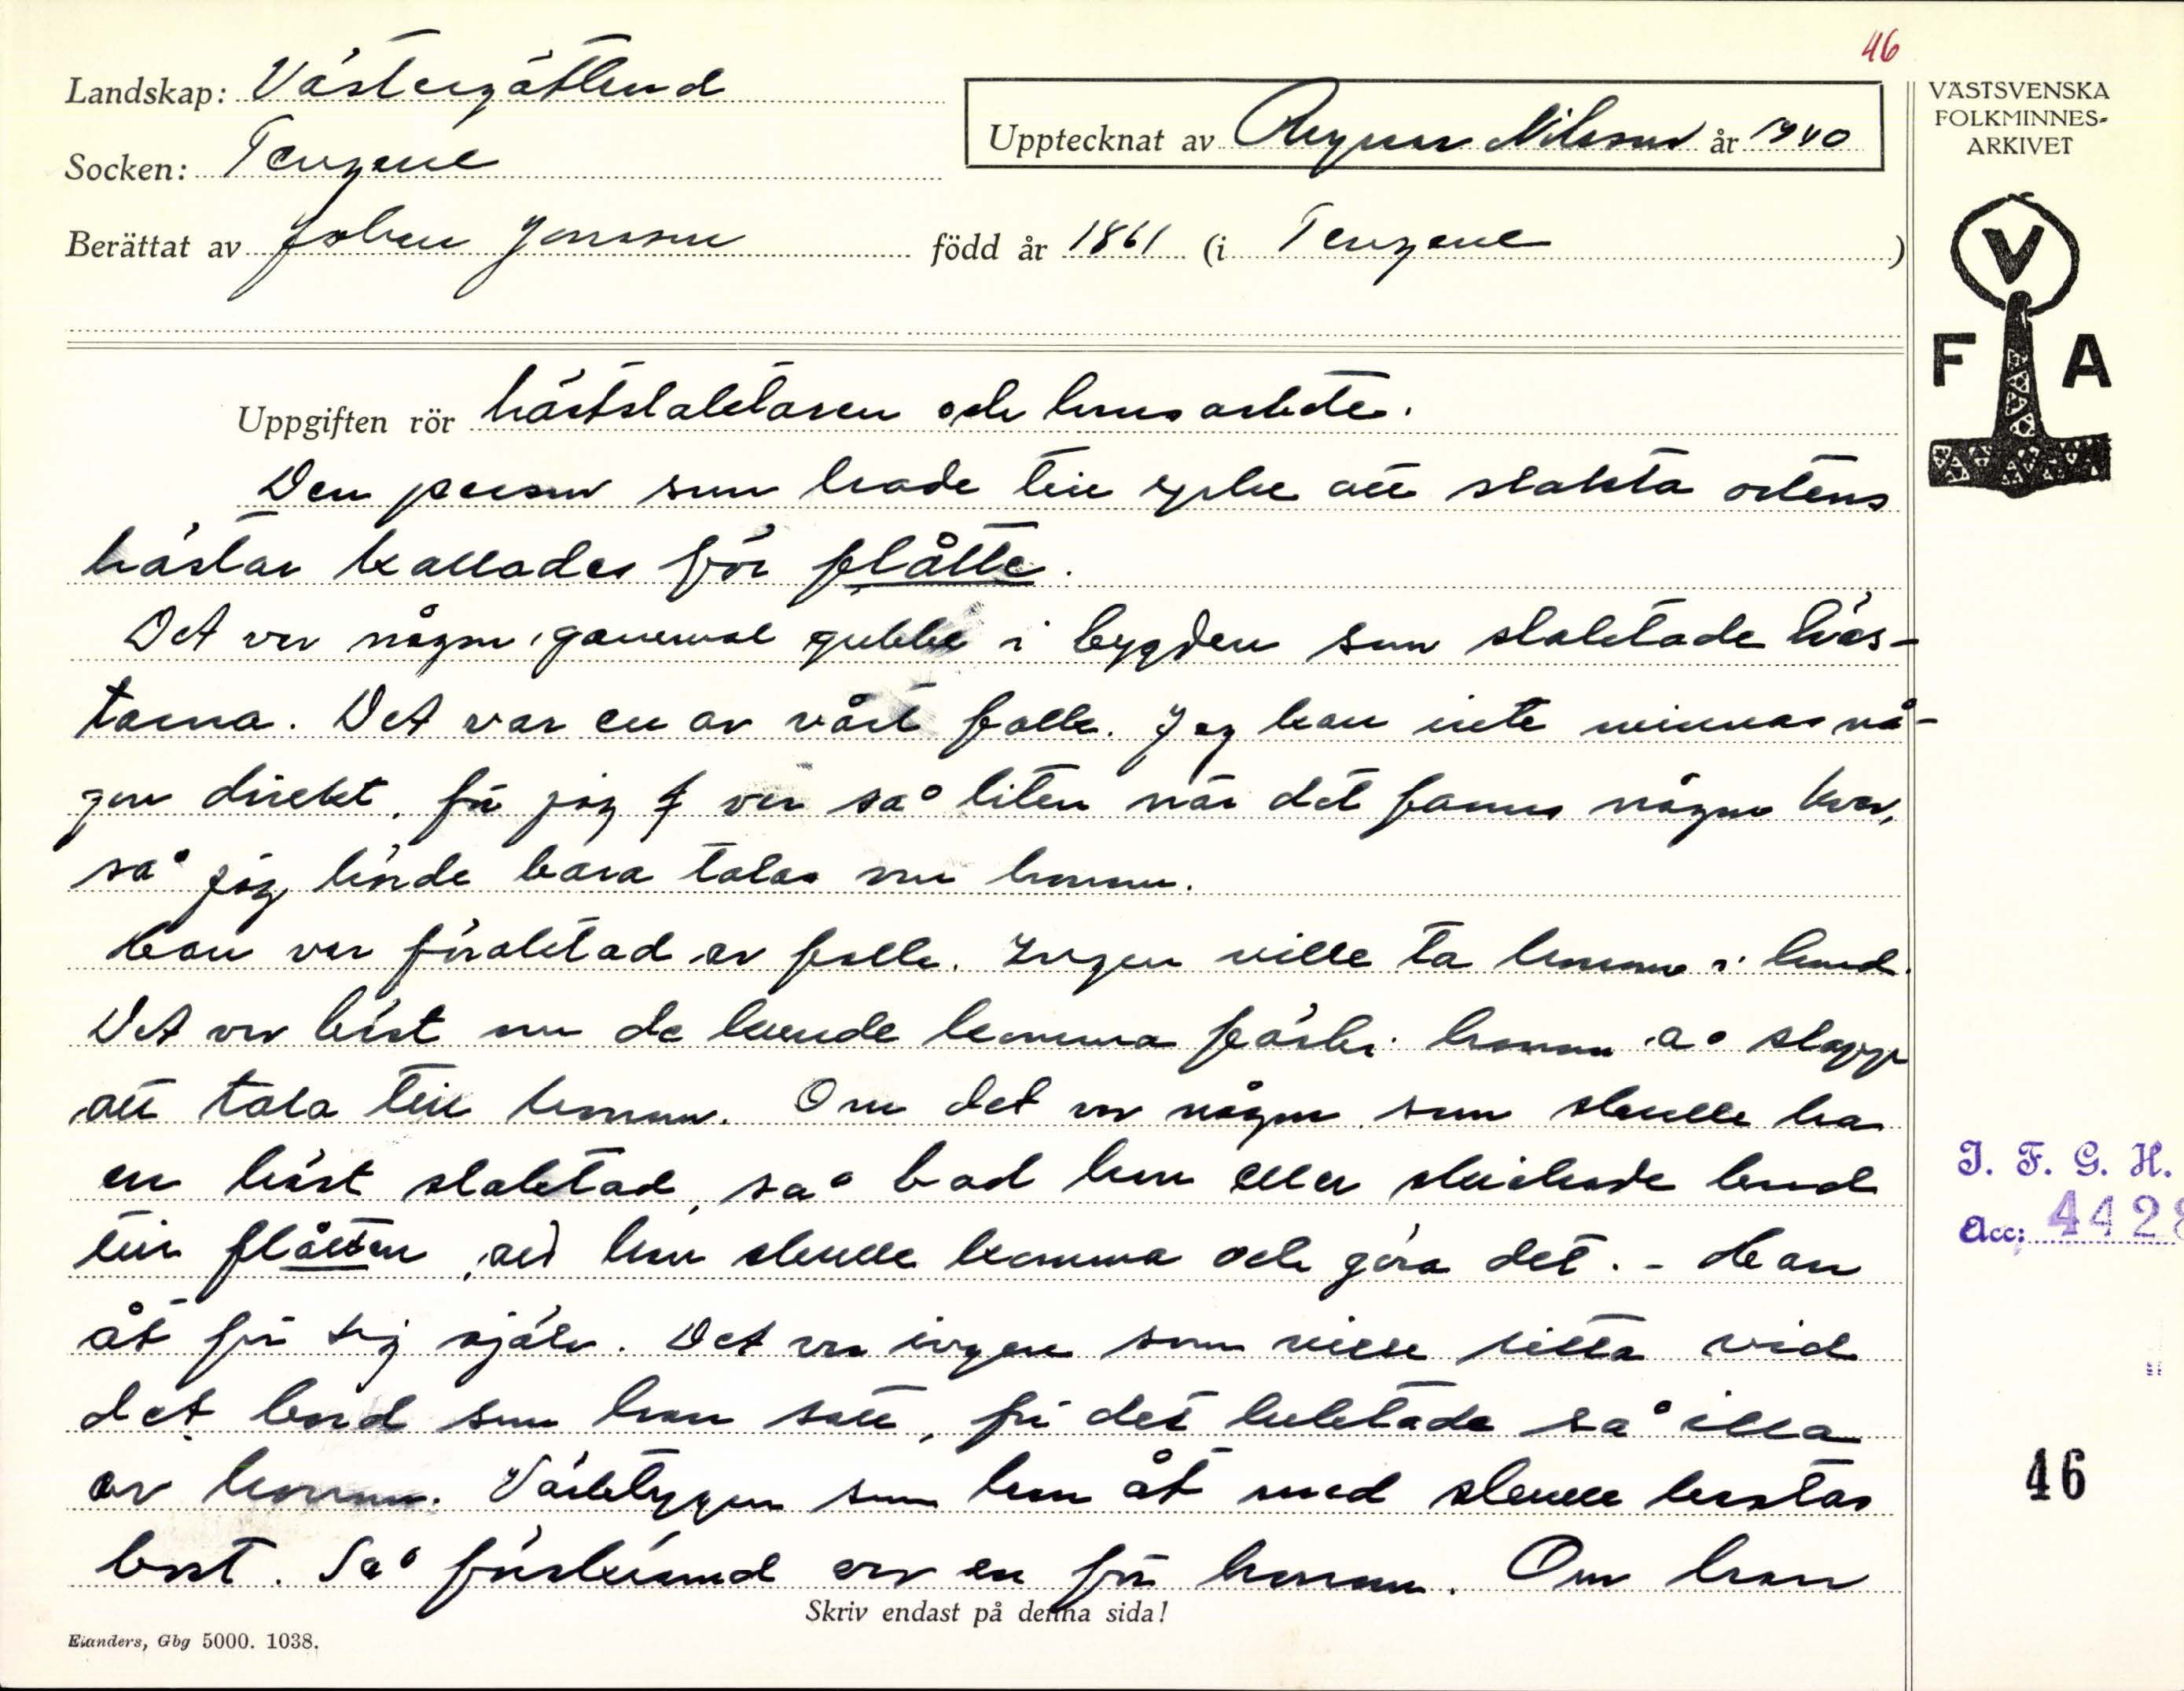 46
Landskap: Västergötland
Upptecknat av Ragnar Nilsson år 1940
VÄSTSVENSKA
FOLKMINNES-
ARKIVET
Socken: Tengene
Berättat av Johan Jonsson född år 1861 (i Tengene)
V
F A
Uppgiften rör hästslaktaren och hans arbete.
Den person som hade till yrke att slakta ortens
hästar kallades för flåtte.
Det var någon gammal gubbe i bygden som slaktade häs-
tarna. Det var en av vårt folk. Jag kan inte minnas nå-
gon direkt, för jag var så liten när det fanns någon kvar,
så jag hörde bara talas om honom.
Han var föraktad av folk. Ingen ville ta honom i hand.
Det var bäst om de kunde komma förbi honom å slapp
att tala till honom. Om det var någon som skulle ha
en häst slaktad, så bad han eller skickade bud
till flåtten, att han skulle komma och göra det. - Han
åt för sig själv. Det var ingen som ville sitta vid
det bord som han satt, för det luktade så illa
av honom. Verktygen som han åt med skulle kastas
bort. Så förskrämd var en för honom. Om han
Skriv endast på denna sida!
Elanders, Gbg 5000. 1038.
I. F. G. H.
Acc: 4428
46